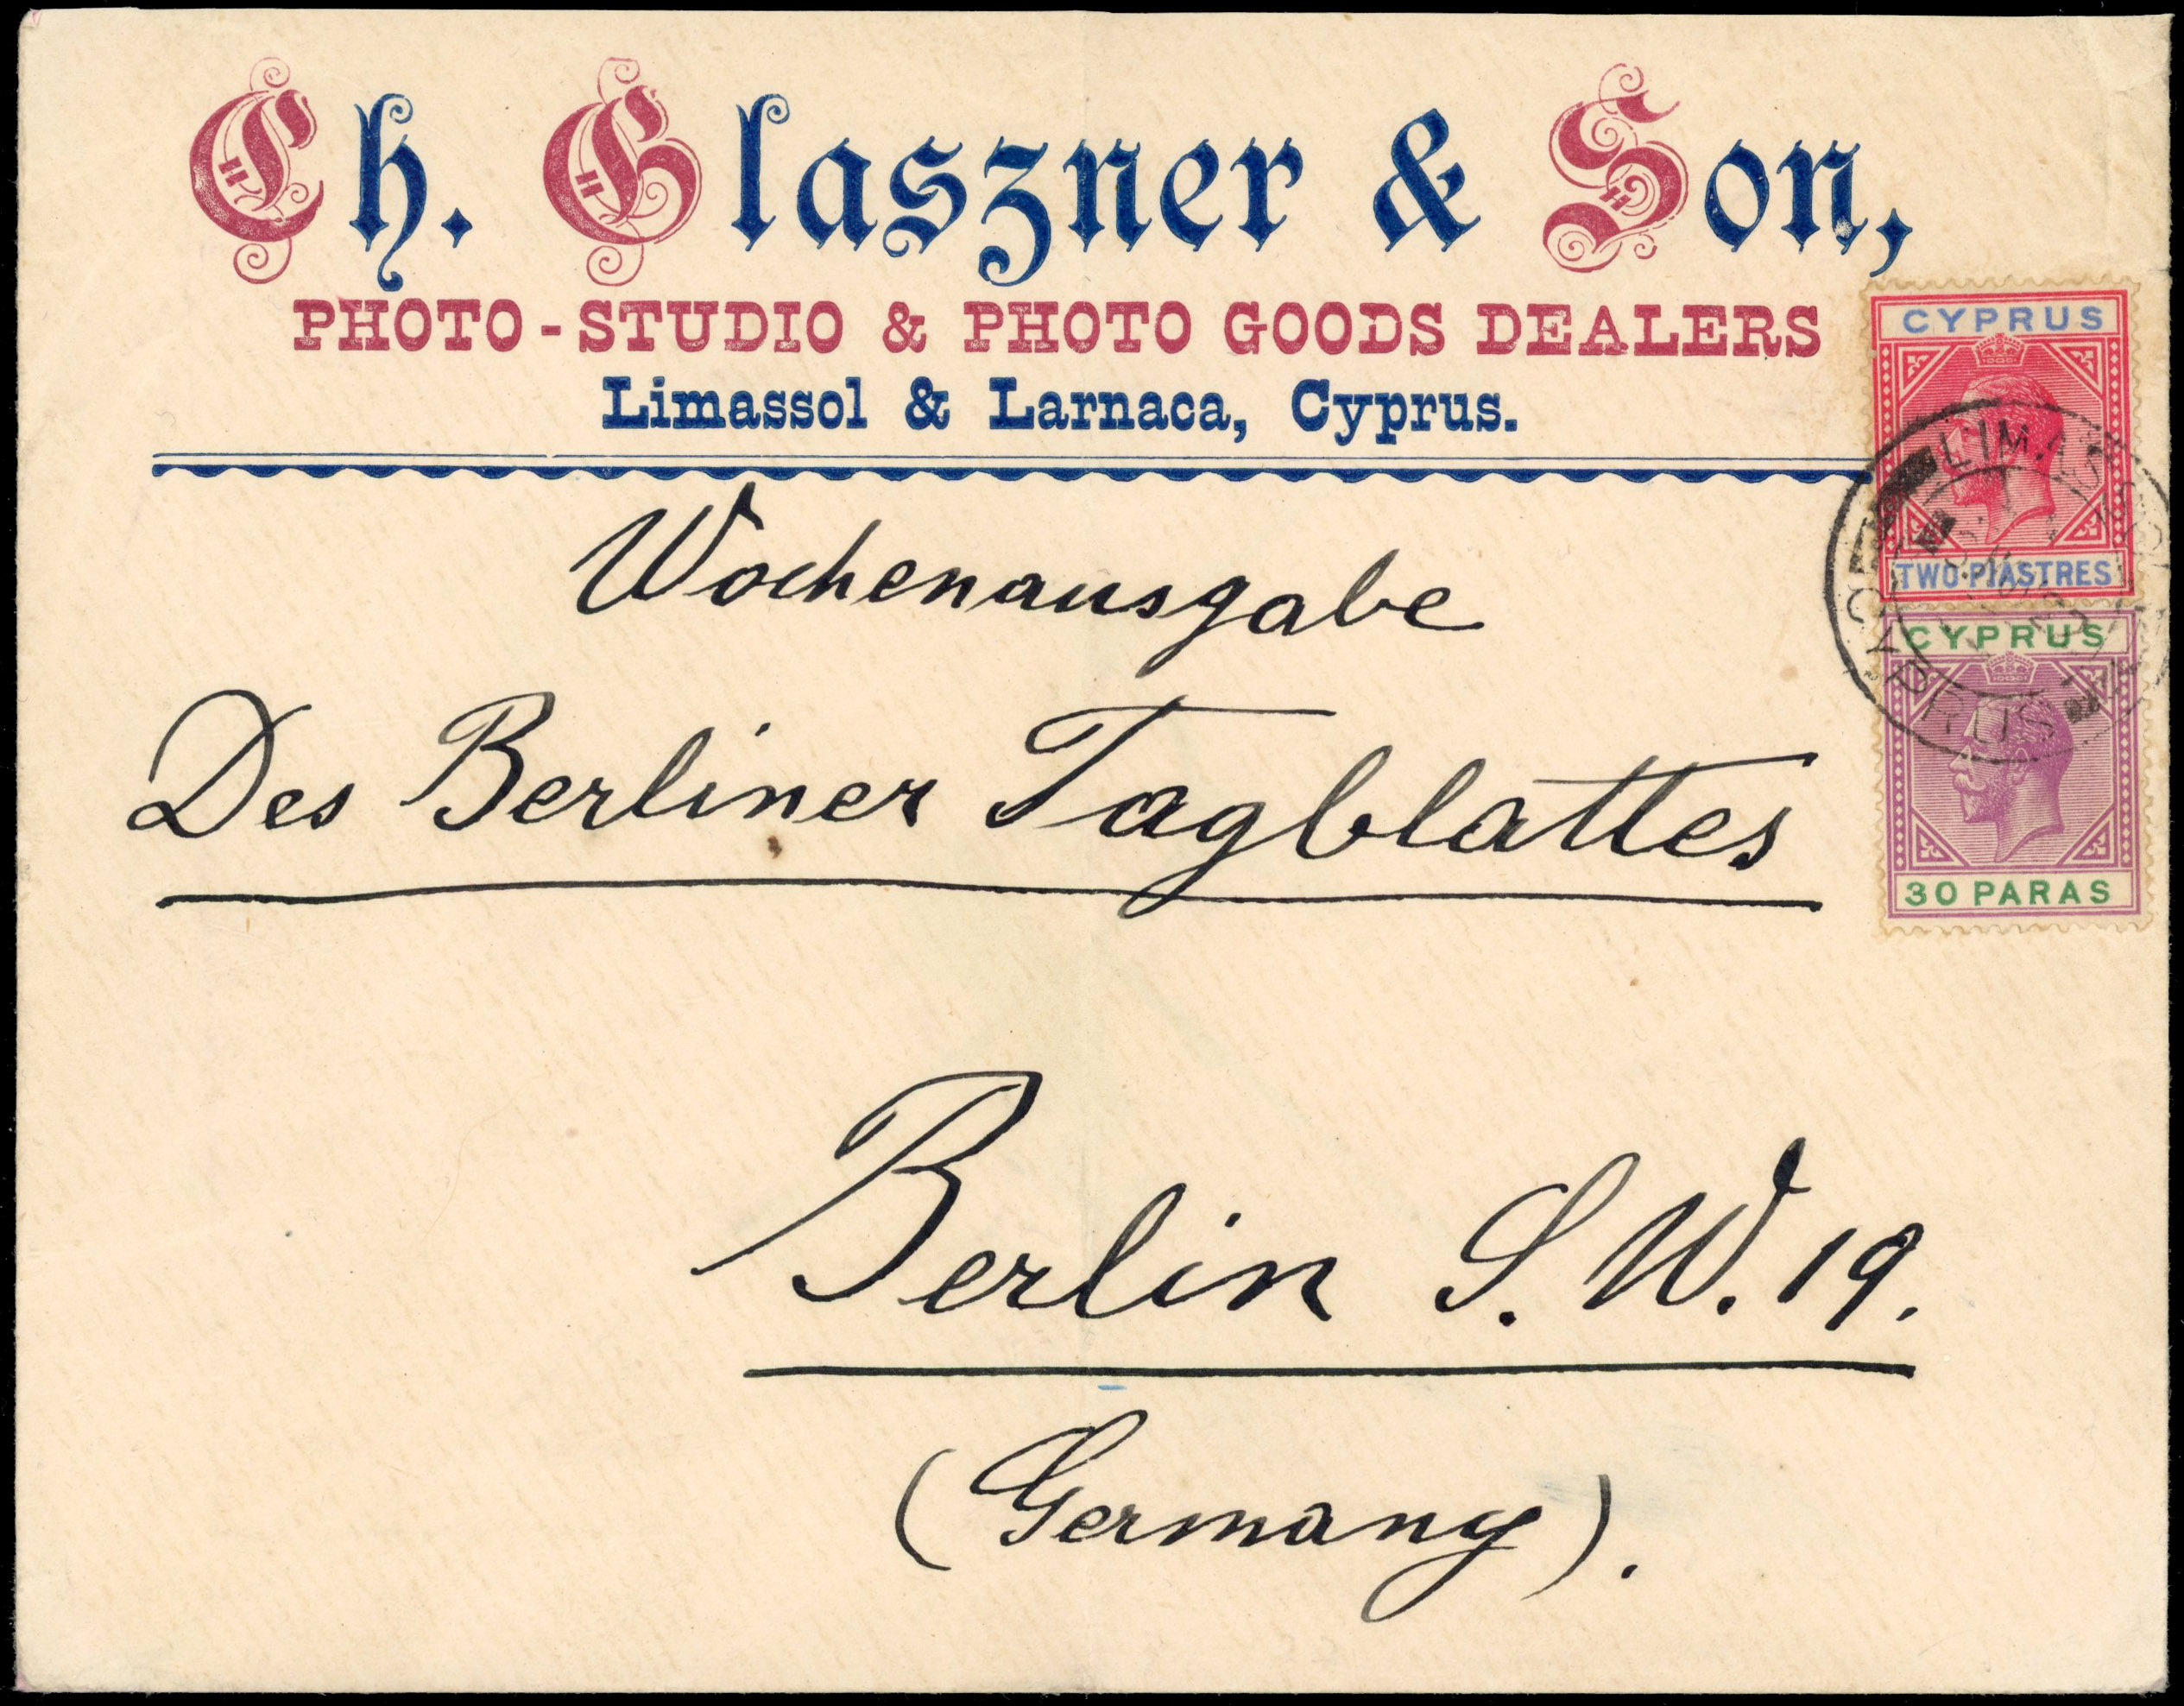 Ch. Glaszner & Son,
PHOTO-STUDIO & PHOTO GOODS DEALERS
Limassol & Larnaca, Cyprus.
CYPRUS
TWO PIASTRES
CYPRUS
30 PARAS
LIMASSOL
CYPRUS
Wochenausgabe
Des Berliner Tagblattes
Berlin S. W. 19.
(Germany).